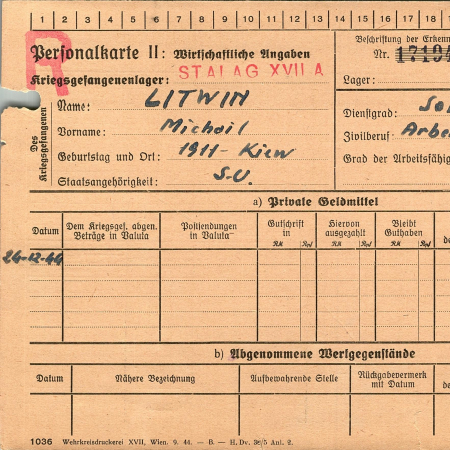 1 2 3 4 5 6 7 8 9 10 11 12 13 14 15 16 17 18
R
Personalkarte II: Wirtschaftliche Angaben
Kriegsgefangenenlager: STALAG XVII A
Beschriftung der Erkenn
Nr. 17194
Lager:
Des Kriegsgefangenen
Name: LITWIN
Vorname: Michail
Geburtstag und Ort: 1911 - Kiew
Staatsangehörigkeit: S.U.
Dienstgrad: Sol
Zivilberuf: Arbe
Grad der Arbeitsfähig
a) Private Geldmittel
Datum
Dem Kriegsgef. abgen. Beträge in Valuta
Postsendungen in Valuta
Gutschrift in
RM Rpf
Hiervon ausgezahlt
RM Rpf
Bleibt Guthaben
RM Rpf
de
24-12-44
b) Abgenommene Wertgegenstände
Datum
Nähere Bezeichnung
Aufbewahrende Stelle
Rückgabevermerk mit Datum
de
1036 Wehrkreisdruckerei XVII, Wien. 9. 44. — B. — H. Dv. 38/5 Anl. 2.